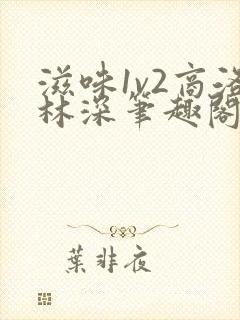 滋味1v2高洛
林深笔趣阁
叶非夜